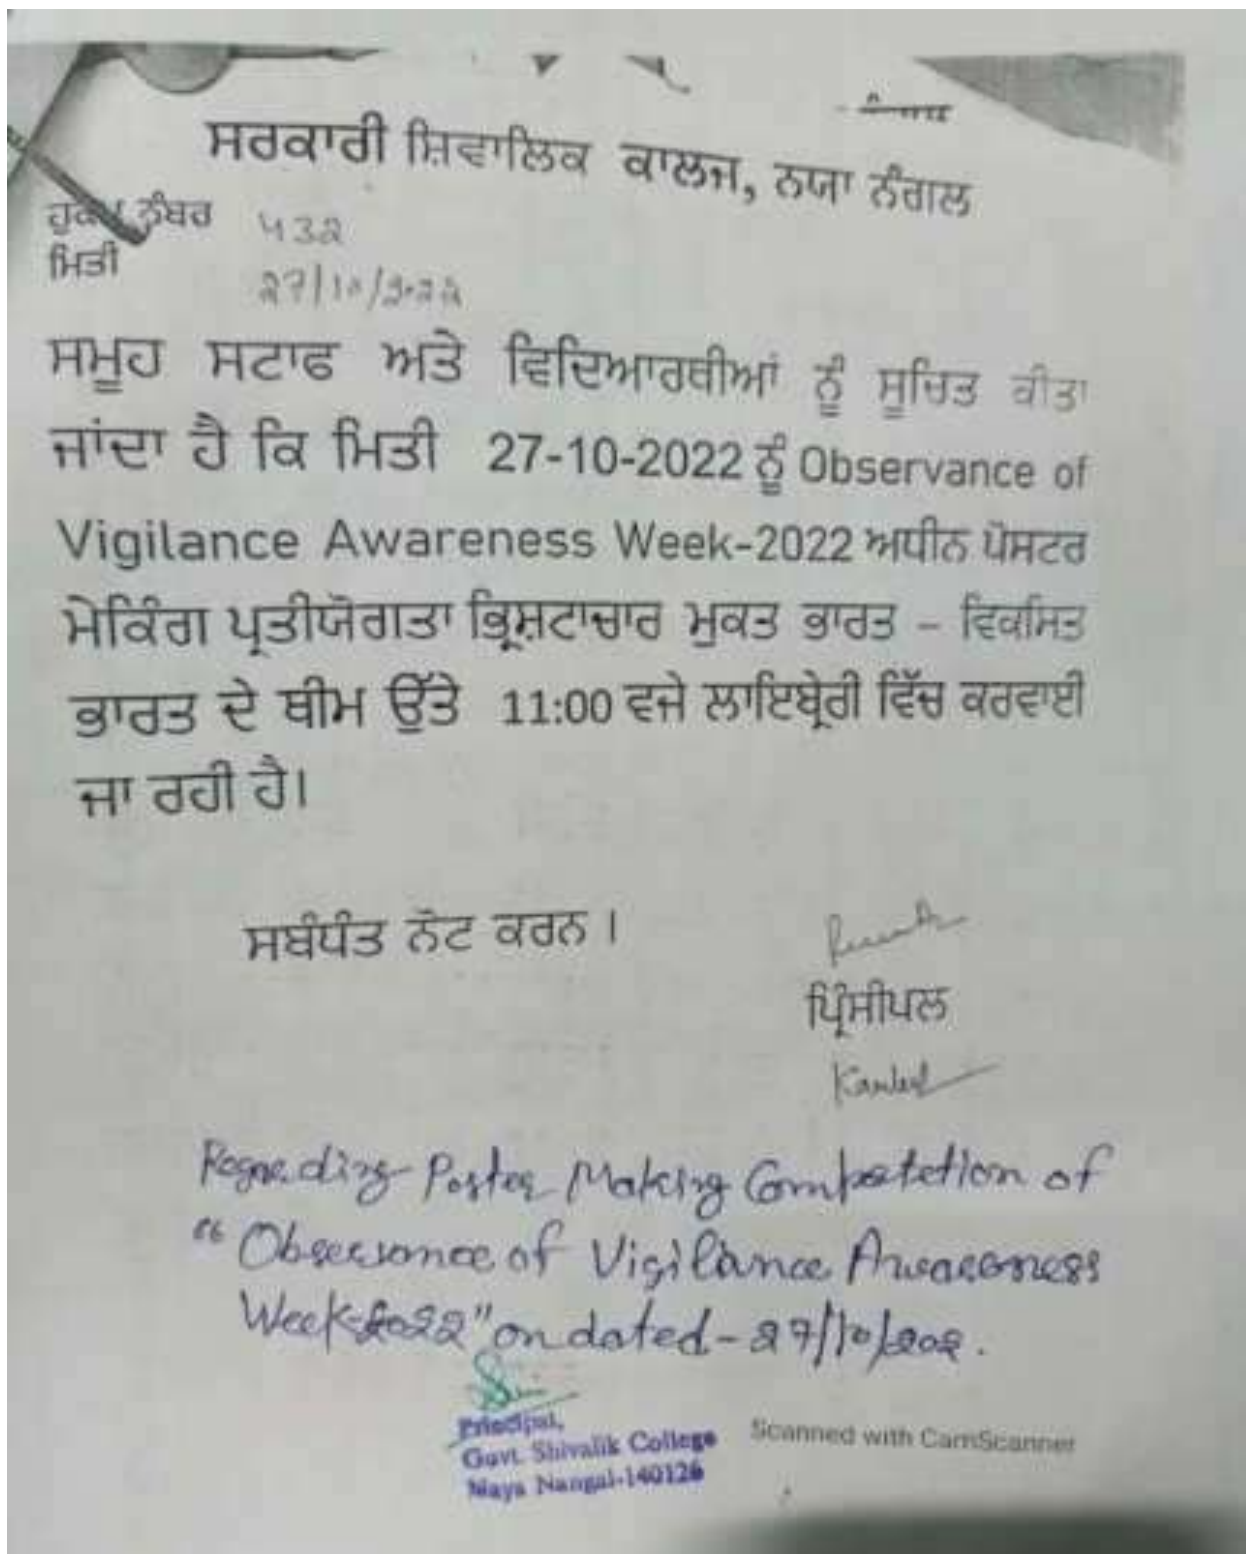 ਸਰਕਾਰੀ ਸ਼ਿਵਾਲਿਕ ਕਾਲਜ, ਨਯਾ ਨੰਗਲ
ਹੁਕਮ ਨੰਬਰ 432
ਮਿਤੀ 27/10/2022
ਸਮੂਹ ਸਟਾਫ ਅਤੇ ਵਿਦਿਆਰਥੀਆਂ ਨੂੰ ਸੂਚਿਤ ਕੀਤਾ
ਜਾਂਦਾ ਹੈ ਕਿ ਮਿਤੀ 27-10-2022 ਨੂੰ Observance of
Vigilance Awareness Week-2022 ਅਧੀਨ ਪੋਸਟਰ
ਮੇਕਿੰਗ ਪ੍ਰਤੀਯੋਗਤਾ ਭ੍ਰਿਸ਼ਟਾਚਾਰ ਮੁਕਤ ਭਾਰਤ – ਵਿਕਸਿਤ
ਭਾਰਤ ਦੇ ਥੀਮ ਉੱਤੇ 11:00 ਵਜੇ ਲਾਇਬ੍ਰੇਰੀ ਵਿੱਚ ਕਰਵਾਈ
ਜਾ ਰਹੀ ਹੈ।
ਸਬੰਧੰਤ ਨੋਟ ਕਰਨ ।
ਪ੍ਰਿੰਸੀਪਲ
Regarding Poster Making Competetion of
"Observance of Vigilance Awareness
Week-2022" on dated-27/10/202.
Principal,
Govt. Shivalik College
Naya Nangal-140126
Scanned with CamScanner